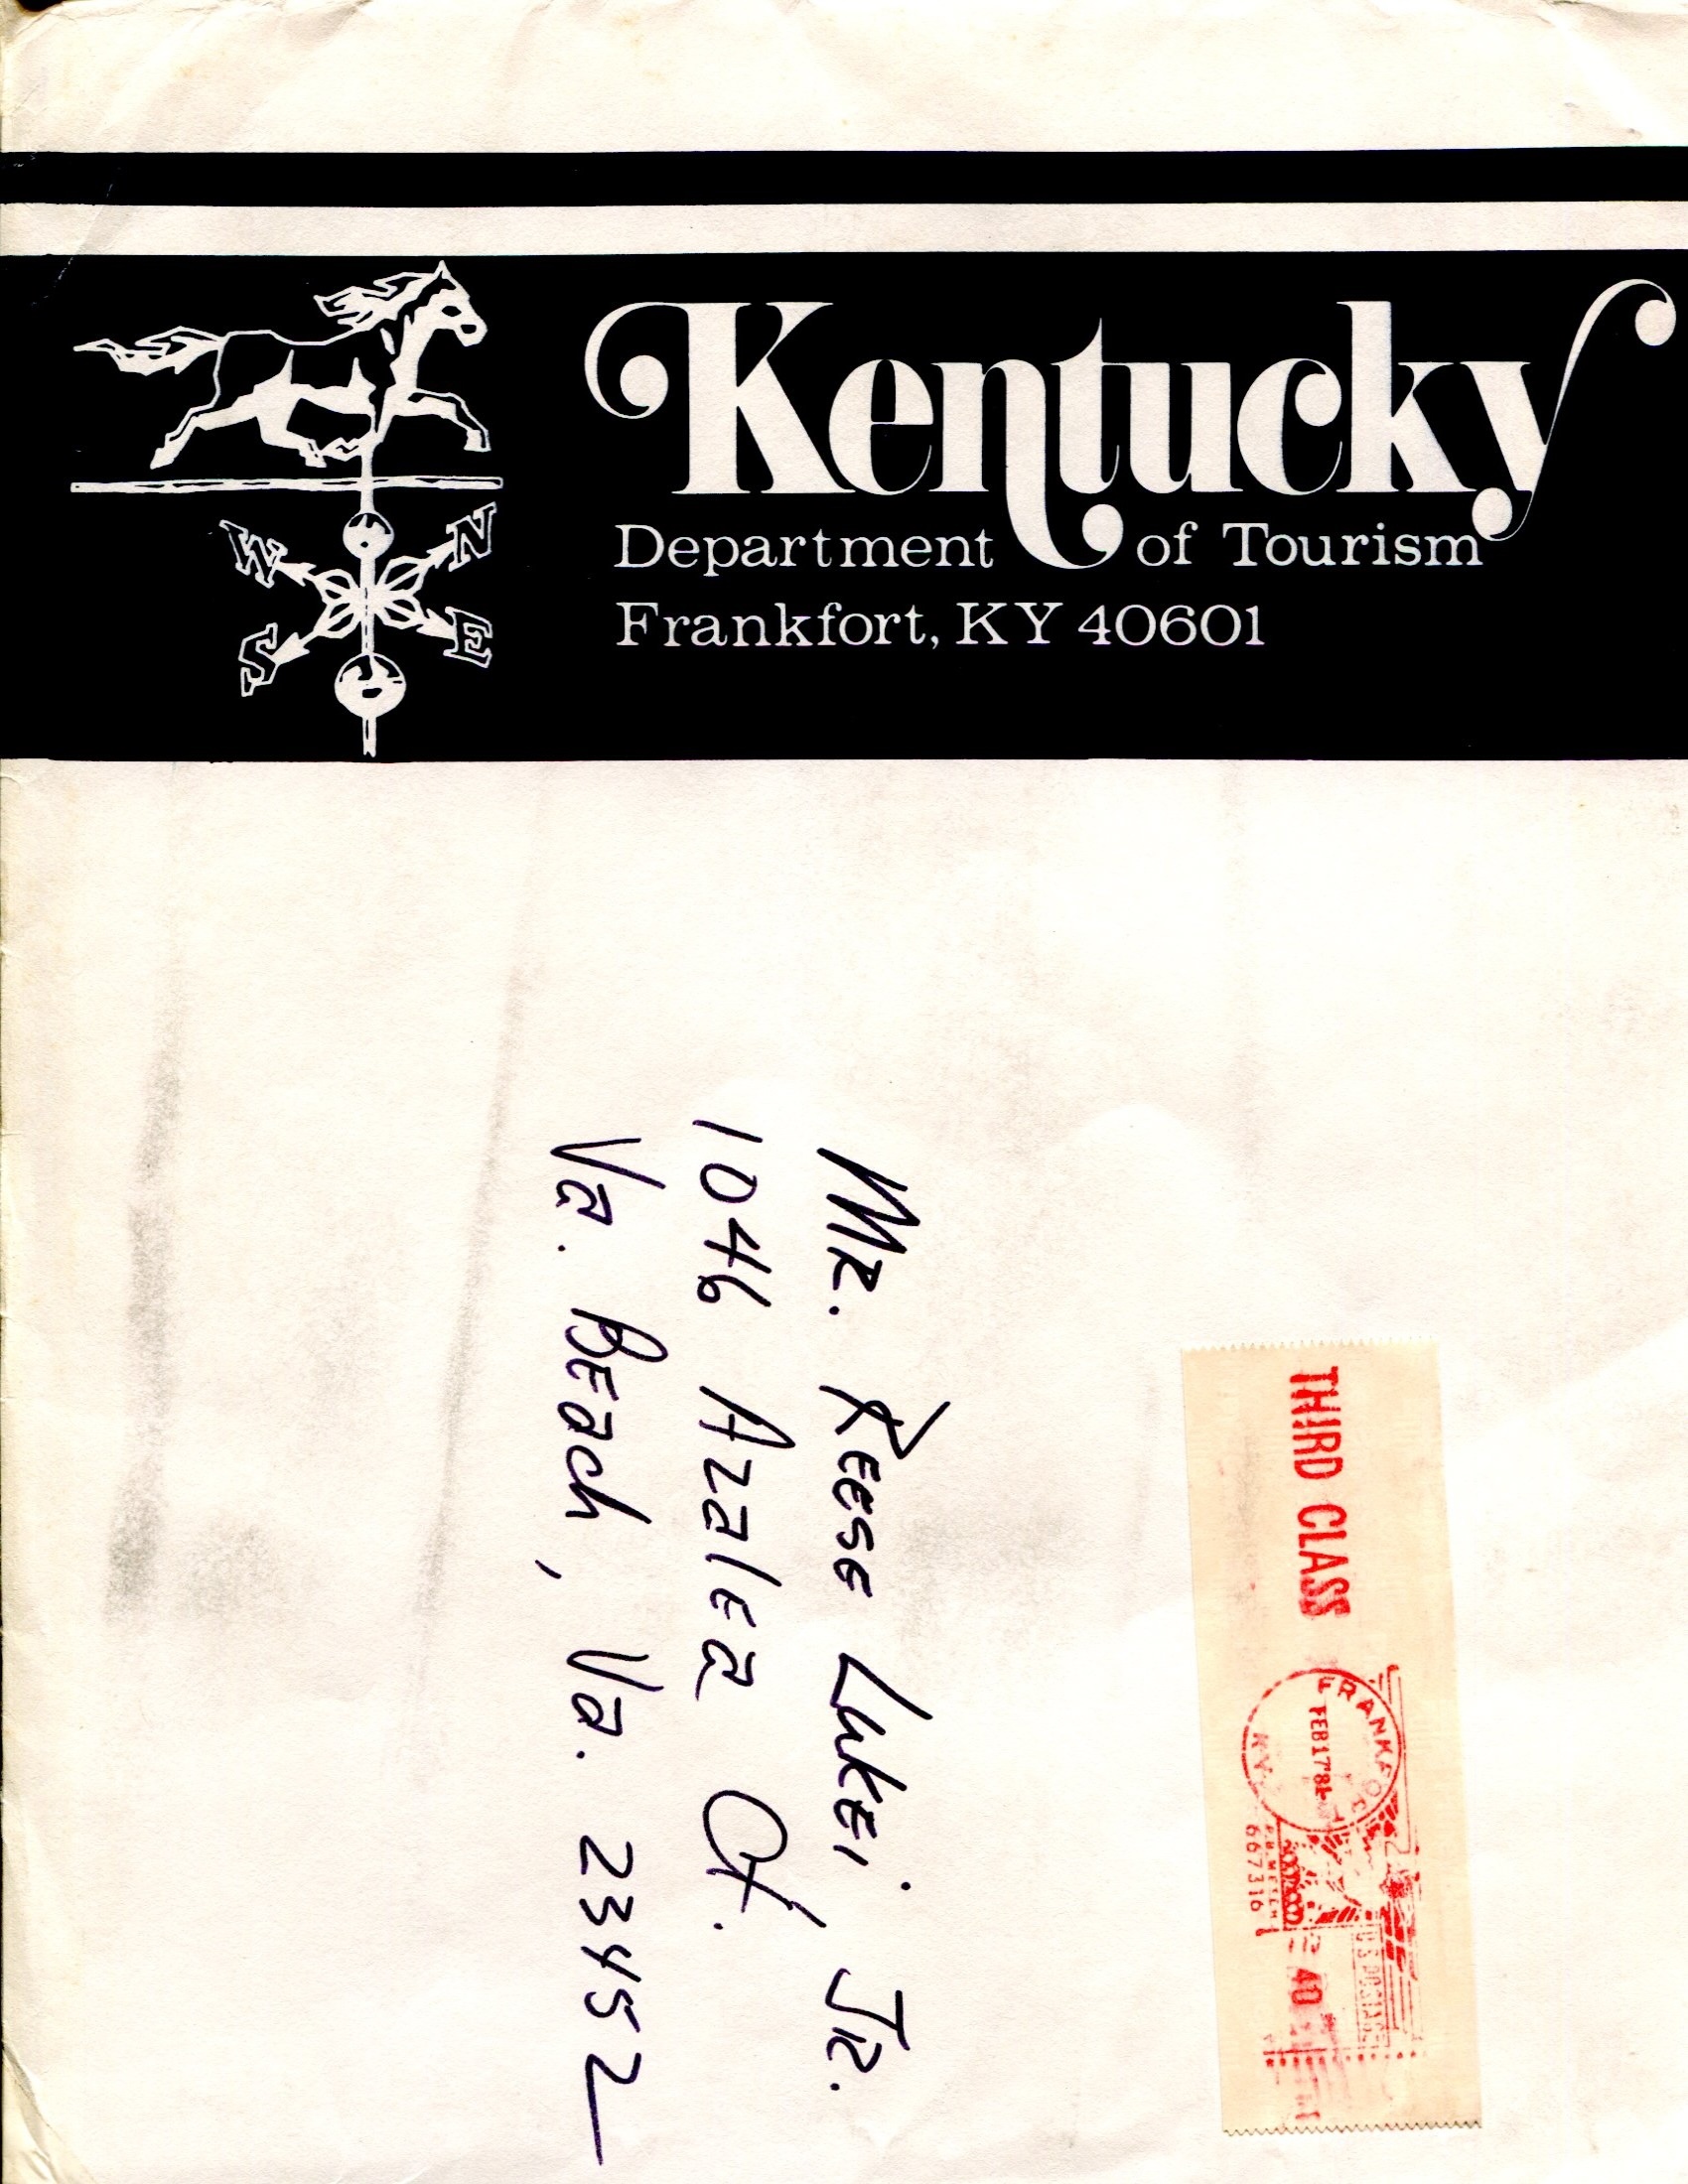 Kentucky
Department of Tourism
Frankfort, KY 40601
W N
S E
THIRD CLASS
FRANKFORT
FEB 17 '81
KY.
P.B. METER
667316
U.S. POSTAGE
Mr. Reese Lukei, Jr.
1046 Azalea Ct.
Va. Beach, Va. 23452